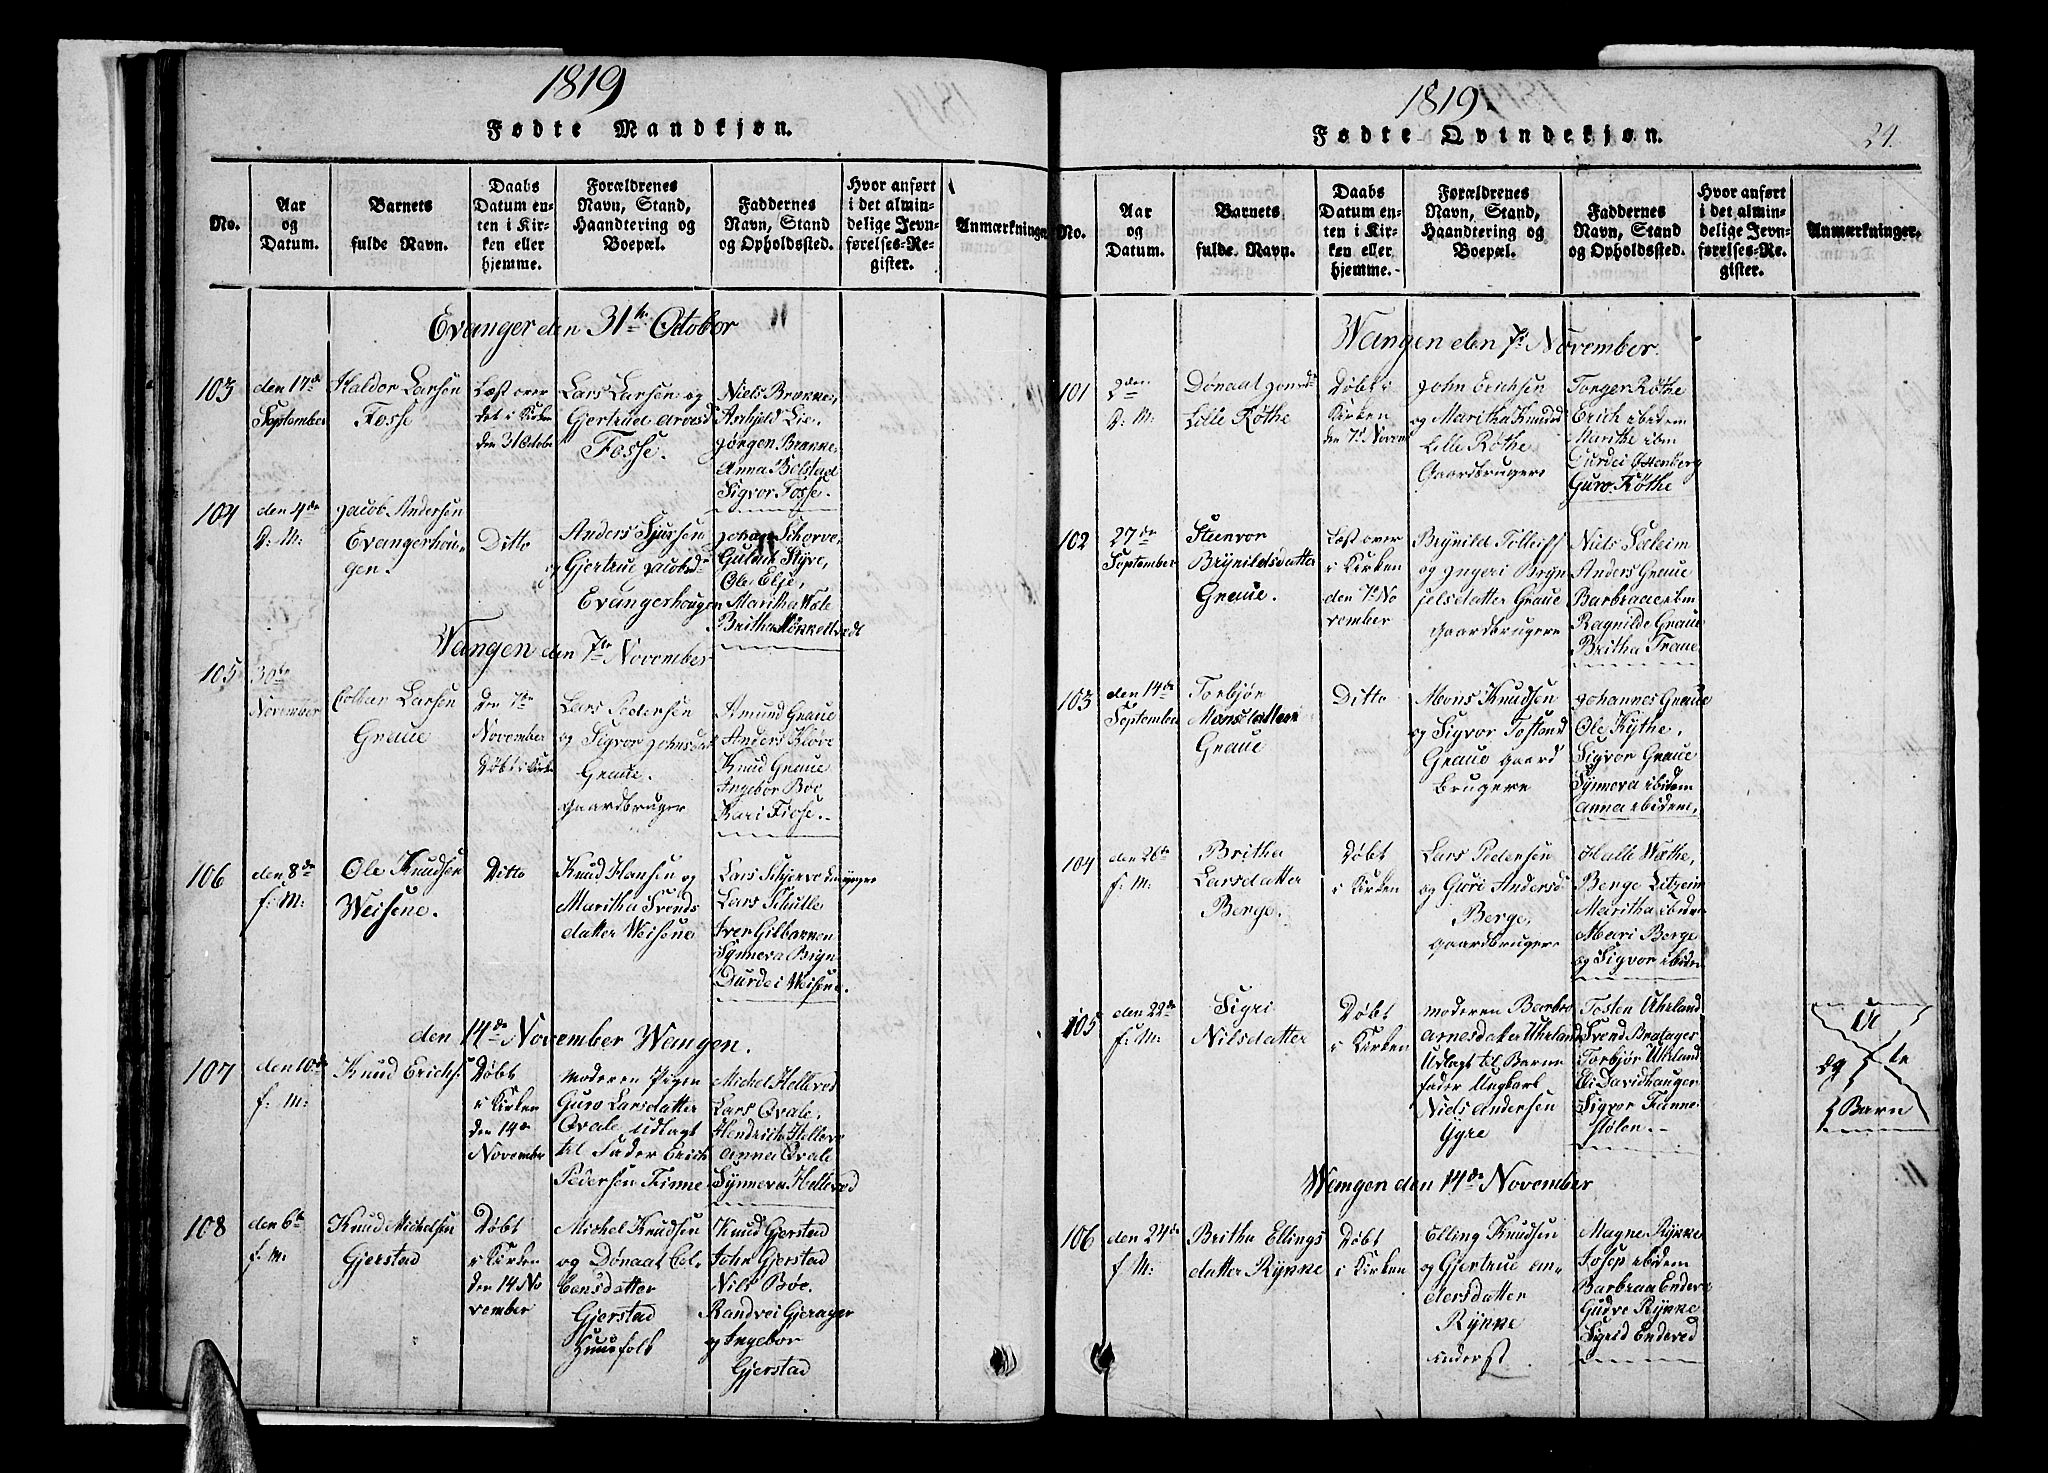 1819
Fødte Mandkjøn.
No.
Aar
og
Datum.
Barnets
fulde Navn.
Daabs
Datum en-
ten i Kir-
ken eller
hjemme.
Forældrenes
Navn, Stand,
Haandtering og
Boepæl.
Faddernes
Navn, Stand
og Opholdssted.
Hvor anført
i det almin-
delige Jevn-
førelses-Re-
gister.
Anmærkninger
Evanger den 31te October
103
den 17de
September
Haldor Larsen
Fosse
Læst over
det i Kirken
den 31 Octobr
Lars Larsen og
Gjertrud
Fosse.
Niels Brønne,
Anhild Lie.
Jørgen Brønne,
Anna Bolstad
Sigvor Fosse.
104
den 4de
d: M:
Jacob Andersen
Evangerhou-
gen.
Ditto
Anders Sjursen
og Gjertrue Jacobsd
Evangerhougen
Johan Schorve,
Guldek Styve,
Ole Elje,
Maritha Wole
Britha
Wangen den 7de November
105
30te
November
Colban Larsen
Graue
den 7de
November
Døbt i Kirke
Lars Pedersen
og Sigvor Johnsdat
Graue.
Gaardbruger
Amund Graue
Anders Kløve
Knud Graue
Ingebor Boe
Kari Fiose.
106
den 8de
f: M:
Ole Knudsen
Weisene.
Ditto
Knud Hansen og
Maritha Svends
datter Weisene
Lars Schjervo
Lars Schulle
Iver Gilbarnen
Synneva Bign
Durdei Weisene.
den 14de November Wangen.
107
den 10de
f: M:
Knud Erichs:
Døbt
i Kirken
den 14de
November
moderen Pigen
Guro Larsdatter
Qvale udlagt
til Fader Erich
Pedersen Finne
Michel Hellevod
Lars Qvale.
Hendrich Hellevo
Anna Qvale
Synneva Hellevod
108
den 6te
f: M:
Knud Michelsen
Gjerstad
Døbt
i Kirken
den 14 No
vember
Michel Knudsen
og Dønaat Col-
bensdatter
Gjerstad
Huusfolk
Knud Gjerstad
John Gjerstad
Nils Bøe.
Randvei Gjerager
og Ingebor
Gjerstad
1819
24.
Fødte Qvindekjøn.
No.
Aar
og
Datum.
Barnets
fulde Navn.
Daabs
Datum en-
ten i Kir-
ken eller
hjemme.
Forældrenes
Navn, Stand,
Haandtering og
Boepæl.
Faddernes
Navn, Stand
og Opholdssted.
Hvor anført
i det almin-
delige Jevn-
førelses-Re-
gister.
Anmærkninger.
Wangen den 7de November.
101
2den
d: M:
Dønaat Jonsd:
Lille Røthe
Døbt i
Kirken
den 7de Novem
John Erichsen
og Maritha Knudsd
Lille Røthe
Gaardbrugere
Torger Røthe
Erich ibidem
Marithe ibm
Durdei Østenberg
Guro Røthe
102
27de
September
Steenvor
Brynildsdatter
Graue.
Læst over
i Kirken
den 7de No
vember
Brynild Tolleifs
og Ingeri Bryn
jelsdatter Graue
Gaardbrugere
Niels Soleim
Anders Graue
Barbraae ibm
Ragnilde Graue
Britha Graue
103
den 14de
September
Torbjør
Mansdatter
Graue
Ditto
Mons Knudsen
og Sigvor Tostend
Graue Gaard
brugere
Johannes Graue
Ole Kythe,
Sigvor Graue
Synneva ibidem
anna ibidem,
104
den 26de
f: M:
Britha
Larsdatter
Berge.
Døbt
i Kirken
Lars Pedersen
og Guri Andersd
Berge,
Gaardbrugere
Halle Wæthe,
Benge Litzeim
Maritha ibidem
Mari Berge
og Sigvor ibidem
105
den 22de
f: M:
Sigri
Nilsdatter
Døbt
i Kirken
moderen Barbro
Arnesdatter Uhrland
Udlagt til Barne
fader Ungkarl
Niels Andersen
Ygre
Tosten Uhrland
Svend Bratager
Torbjør Uhrland
Eli Davidhaugen
Sigvor Finne
stølen.
U
æg te
Barn
Wangen den 14de November
106
den 24de
f M:
Britha Ellings
datter Rynne
Døbt
i Kirken
Elling Knudsen
og Gjertrue An-
dersdatter
Rynne
Magne Rynne
Josep ibidem
Barbraa Endeve
Gudve Rynne
Sigrid Endeved